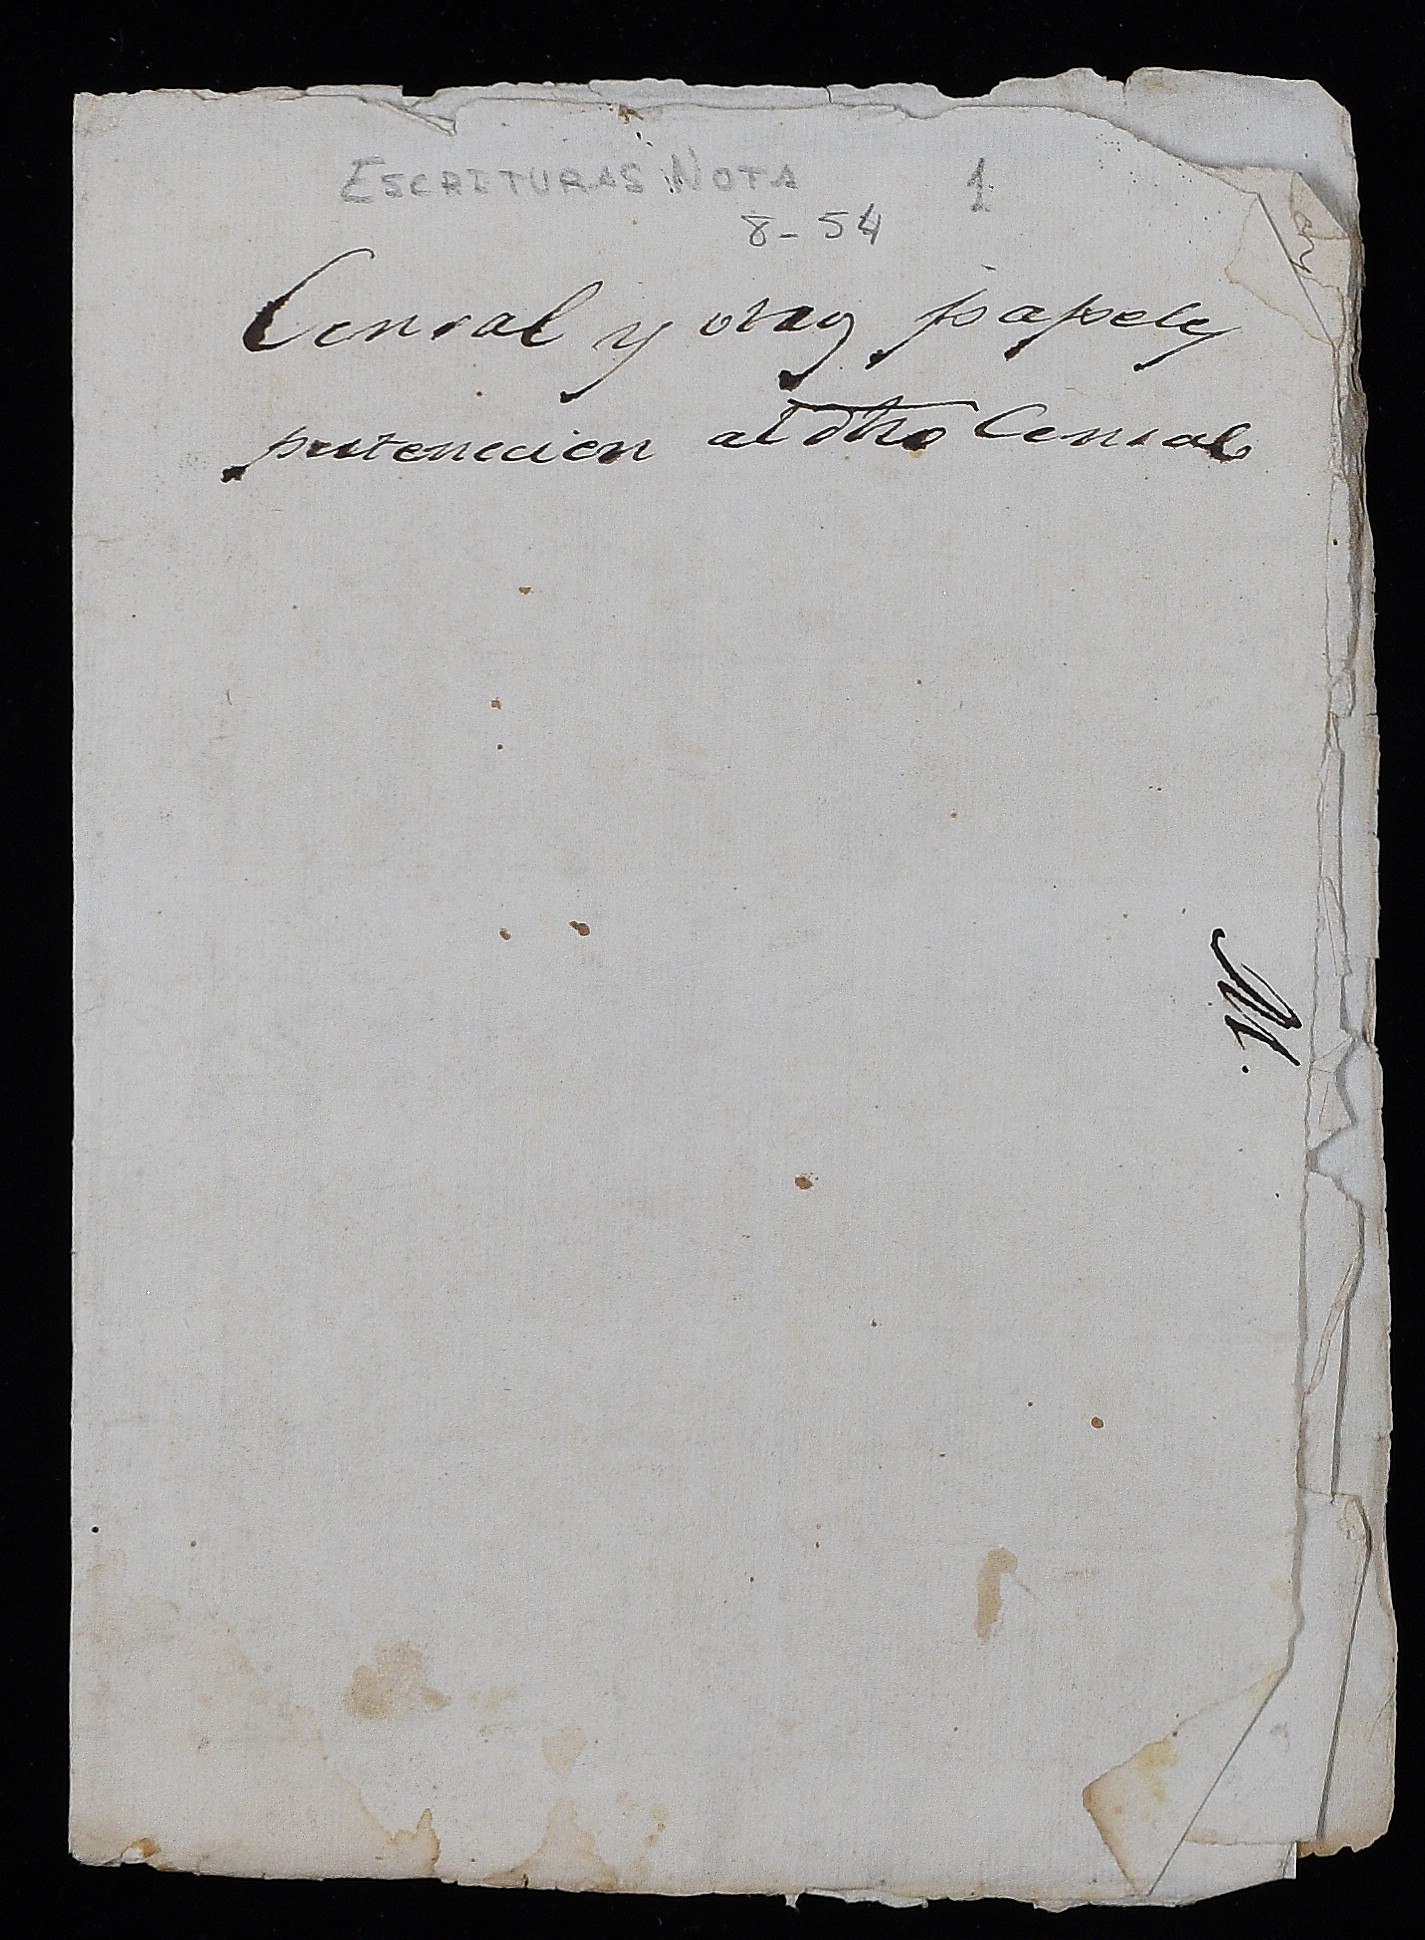 ESCRITURAS NOTA 1
8-54
Censal y otros papeles
pertenecien al dho Censal